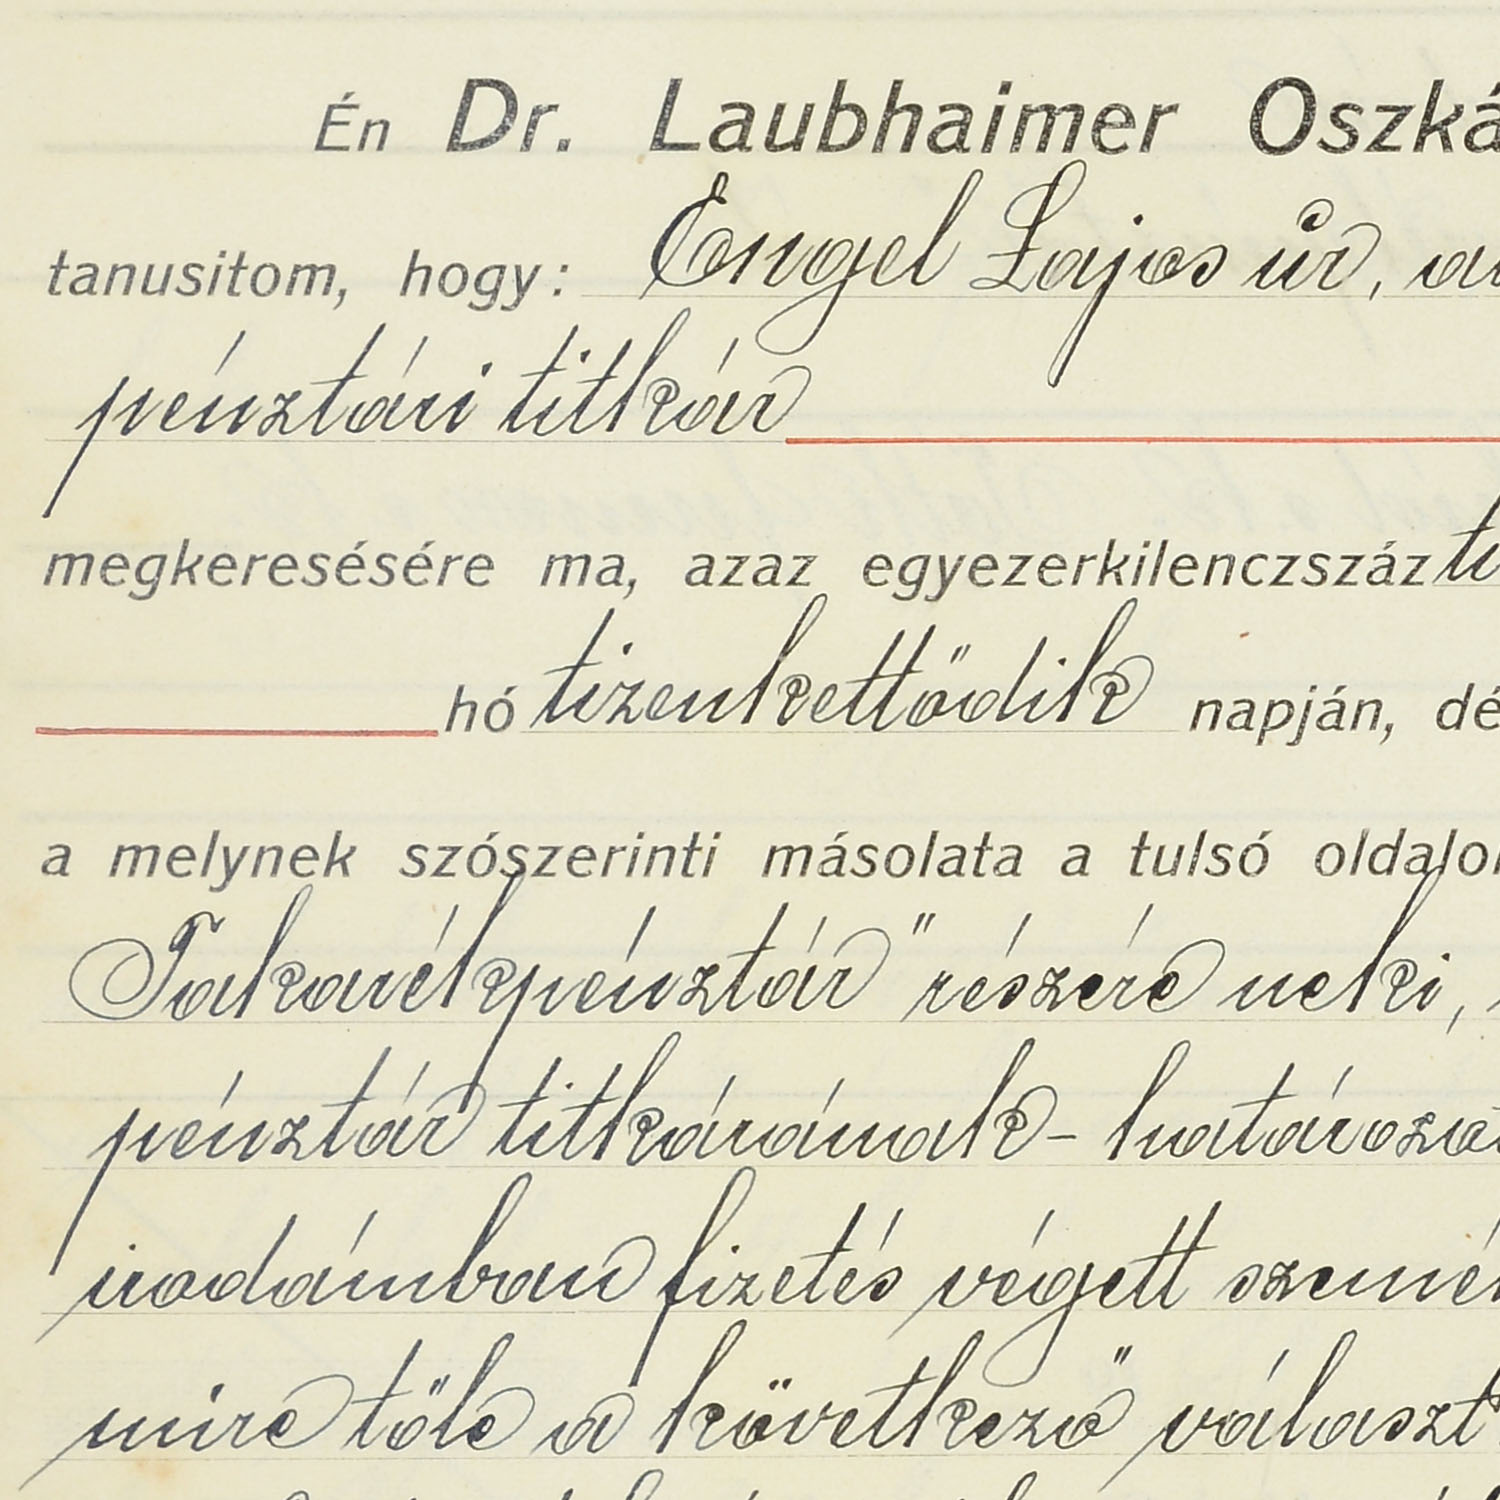 Én Dr. Laubhaimer Oszká
tanusitom, hogy: Engel Lajos úr, a
pénztári titkár
megkeresésére ma, azaz egyezerkilenczszáz ti
hó tizenkettődik napján, dé
a melynek szószerinti másolata a tulsó oldalo
Takarékpénztár" részére neki,
pénztár titkárának - határoza
irodámban fizetés végett szemé
mire tőle a következő választ